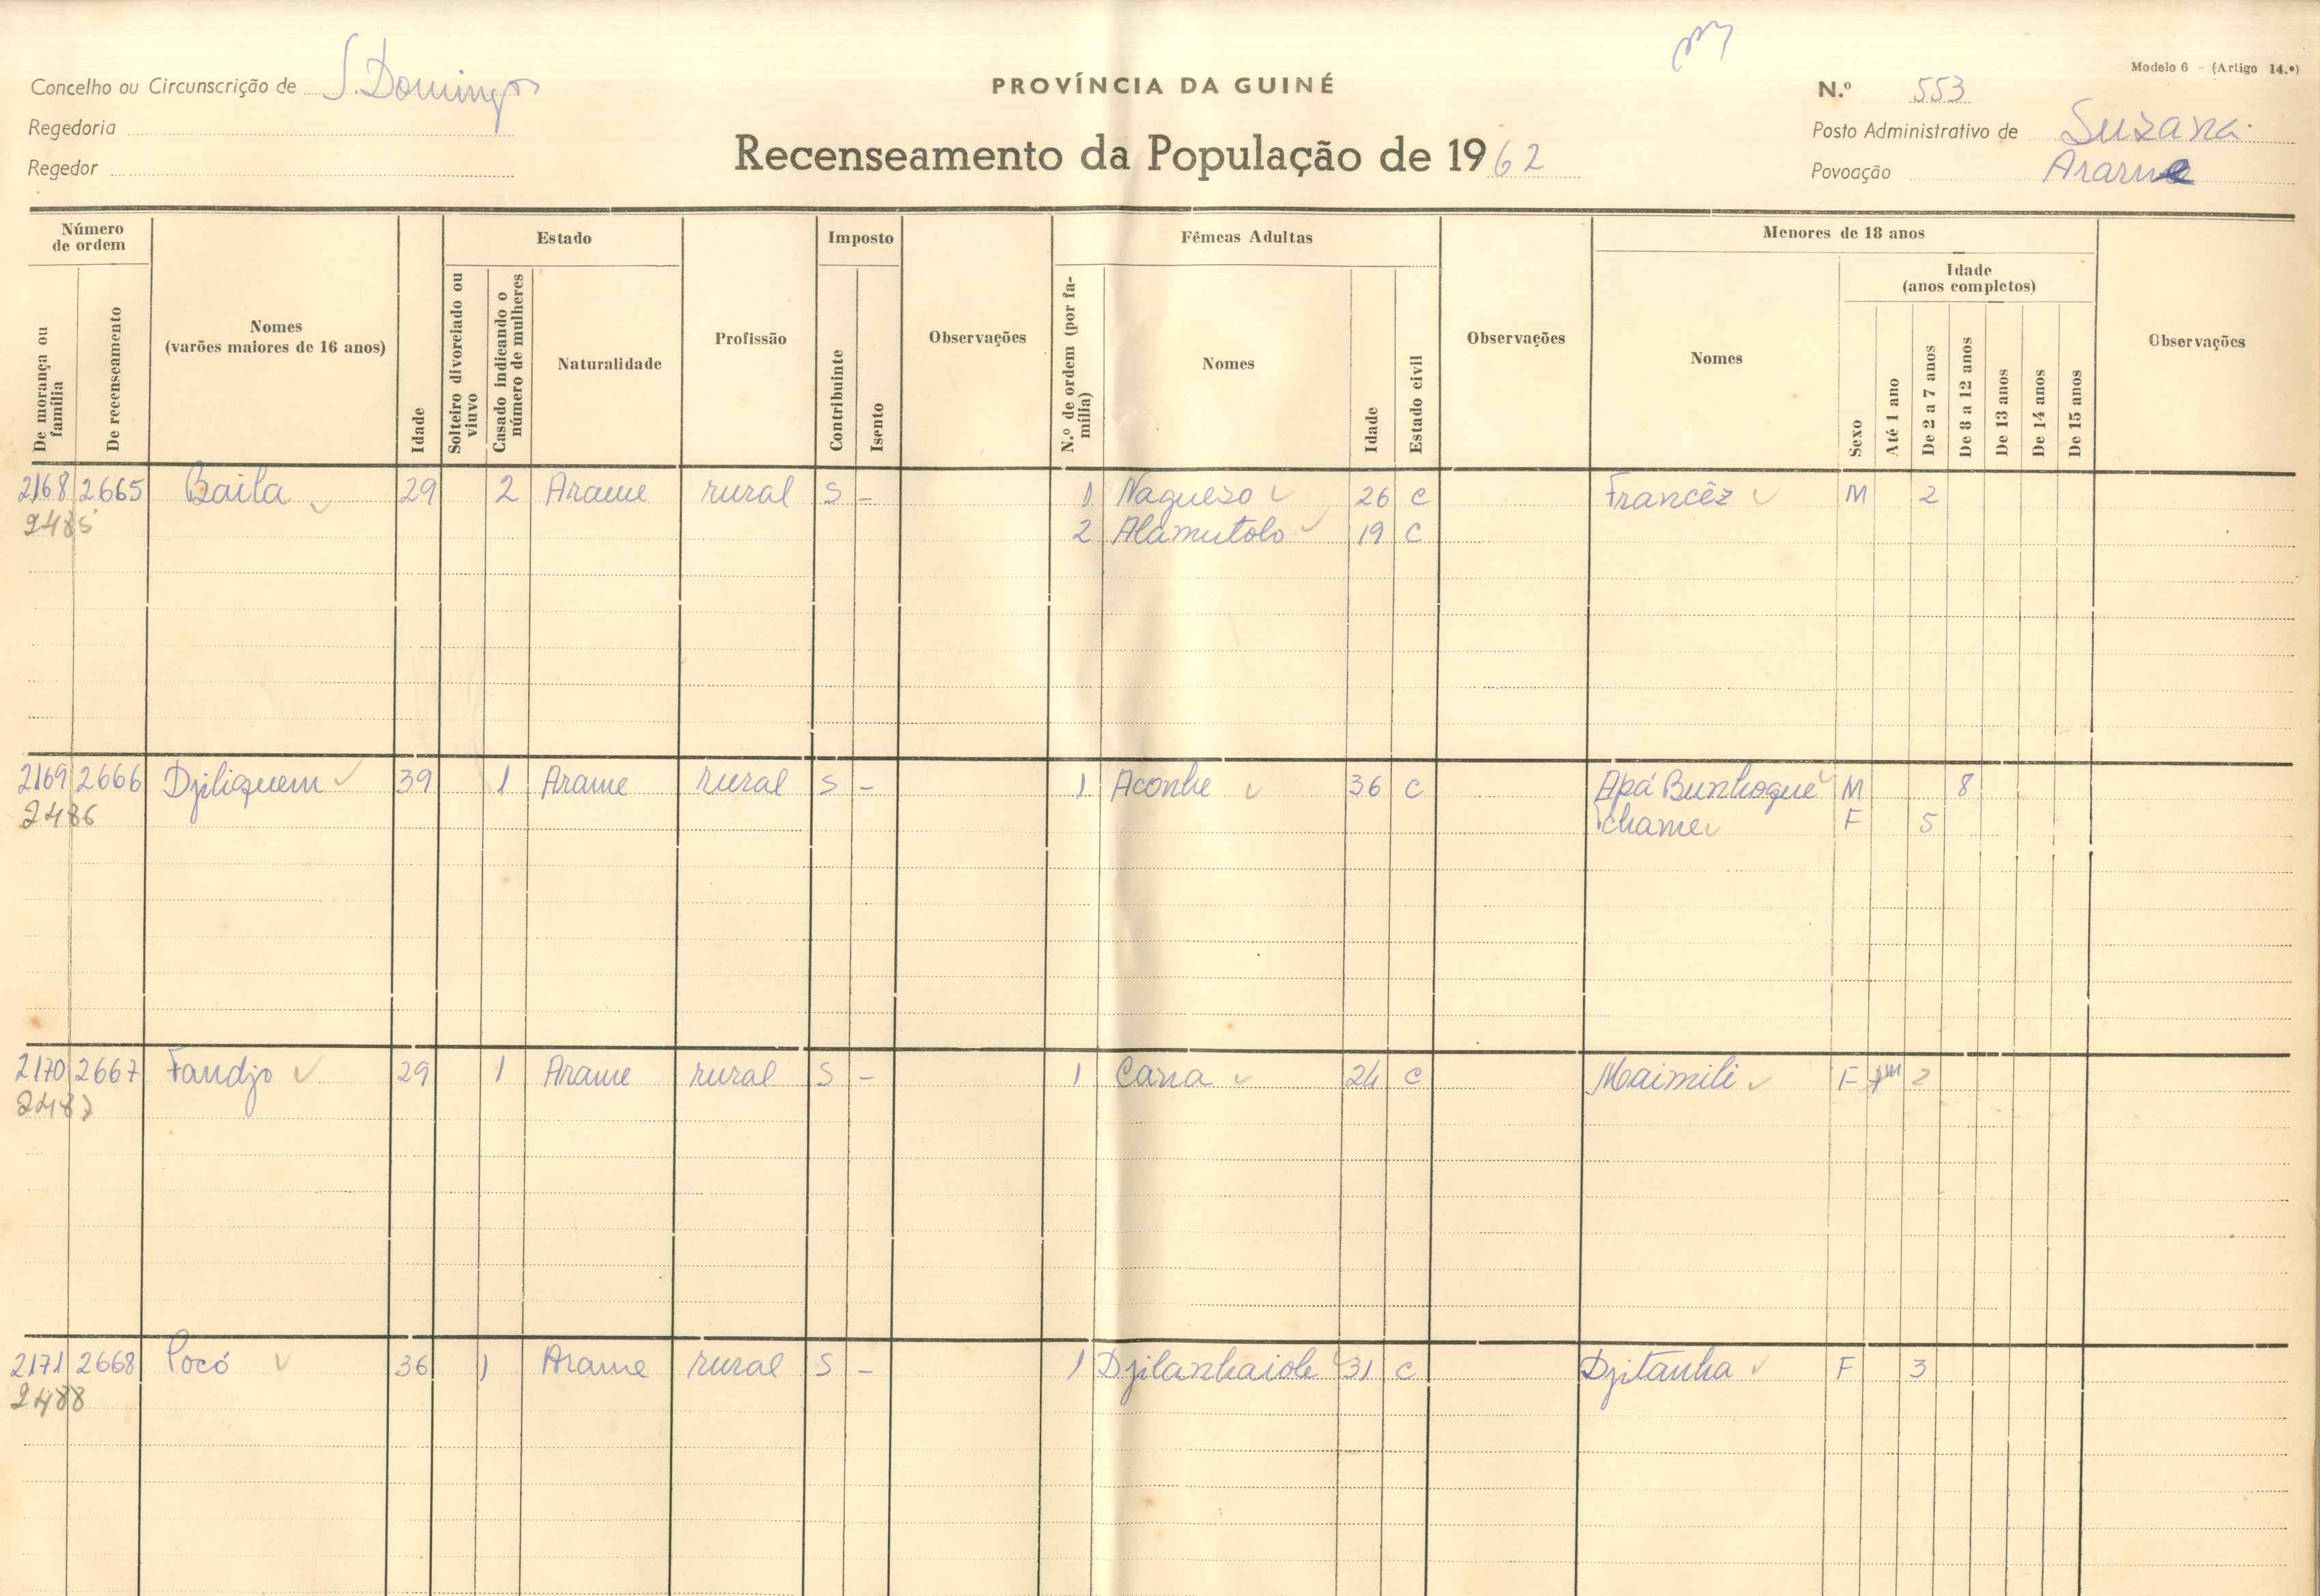 Modelo 6 - (Artigo 14.º)
Concelho ou Circunscrição de S. Domingos
PROVÍNCIA DA GUINÉ
N.º 553
Regedoria
Posto Administrativo de Suzana
Regedor
Recenseamento da População de 1962
Povoação Arame
Número de ordem
Estado
Imposto
Fêmeas Adultas
Menores de 18 anos
De morança ou família
De recenseamento
Nomes (varões maiores de 16 anos)
Idade
Solteiro divorciado ou viuvo
Casado indicando o número de mulheres
Naturalidade
Profissão
Contribuinte
Isento
Observações
N.º de ordem (por família)
Nomes
Idade
Estado civil
Observações
Nomes
Sexo
Idade (anos completos)
Até 1 ano
De 2 a 7 anos
De 8 a 12 anos
De 13 anos
De 14 anos
De 15 anos
Observações
2168 2665 Baila 29 2 Arame rural S - 1 Naguezo 26 C Francêz M 2
2485 2 Alamutolo 19 C
2169 2666 Djiliquem 39 1 Arame rural S - 1 Aconhe 36 C Apá Bunhoque M 8
2486 Chame F 5
2170 2667 Fandjo 29 1 Arame rural S - 1 Cana 24 C Maimili F 2
2487
2171 2668 Pocó 36 1 Arame rural S - 1 Djilanhaiole 31 C Djitanha F 3
2488